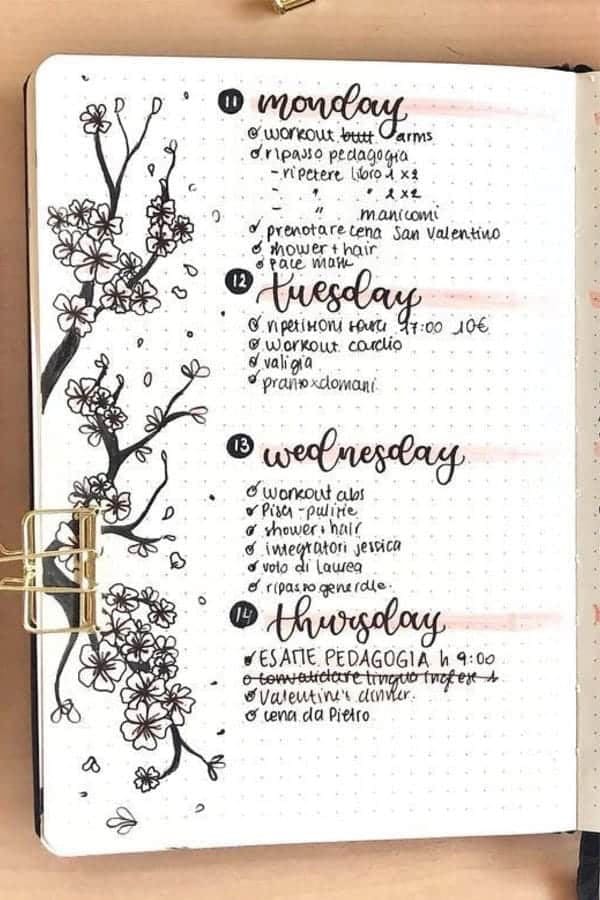 11 monday
workout butt arms
ripasso pedagogia
- ripetere libro 1 x2
- " " 2 x2
- " manicomi
prenotare cena San Valentino
shower + hair
face mask
12 tuesday
ripetizioni 17:00 10€
workout cardio
valigia
pranzo x domani
13 wednesday
workout abs
Pisa - pulizie
shower + hair
integratori jessica
voto di laurea
ripasso generale.
14 thursday
ESAME PEDAGOGIA h 9:00
convalidare lingua inglese 1
Valentine's dinner.
cena da Pietro